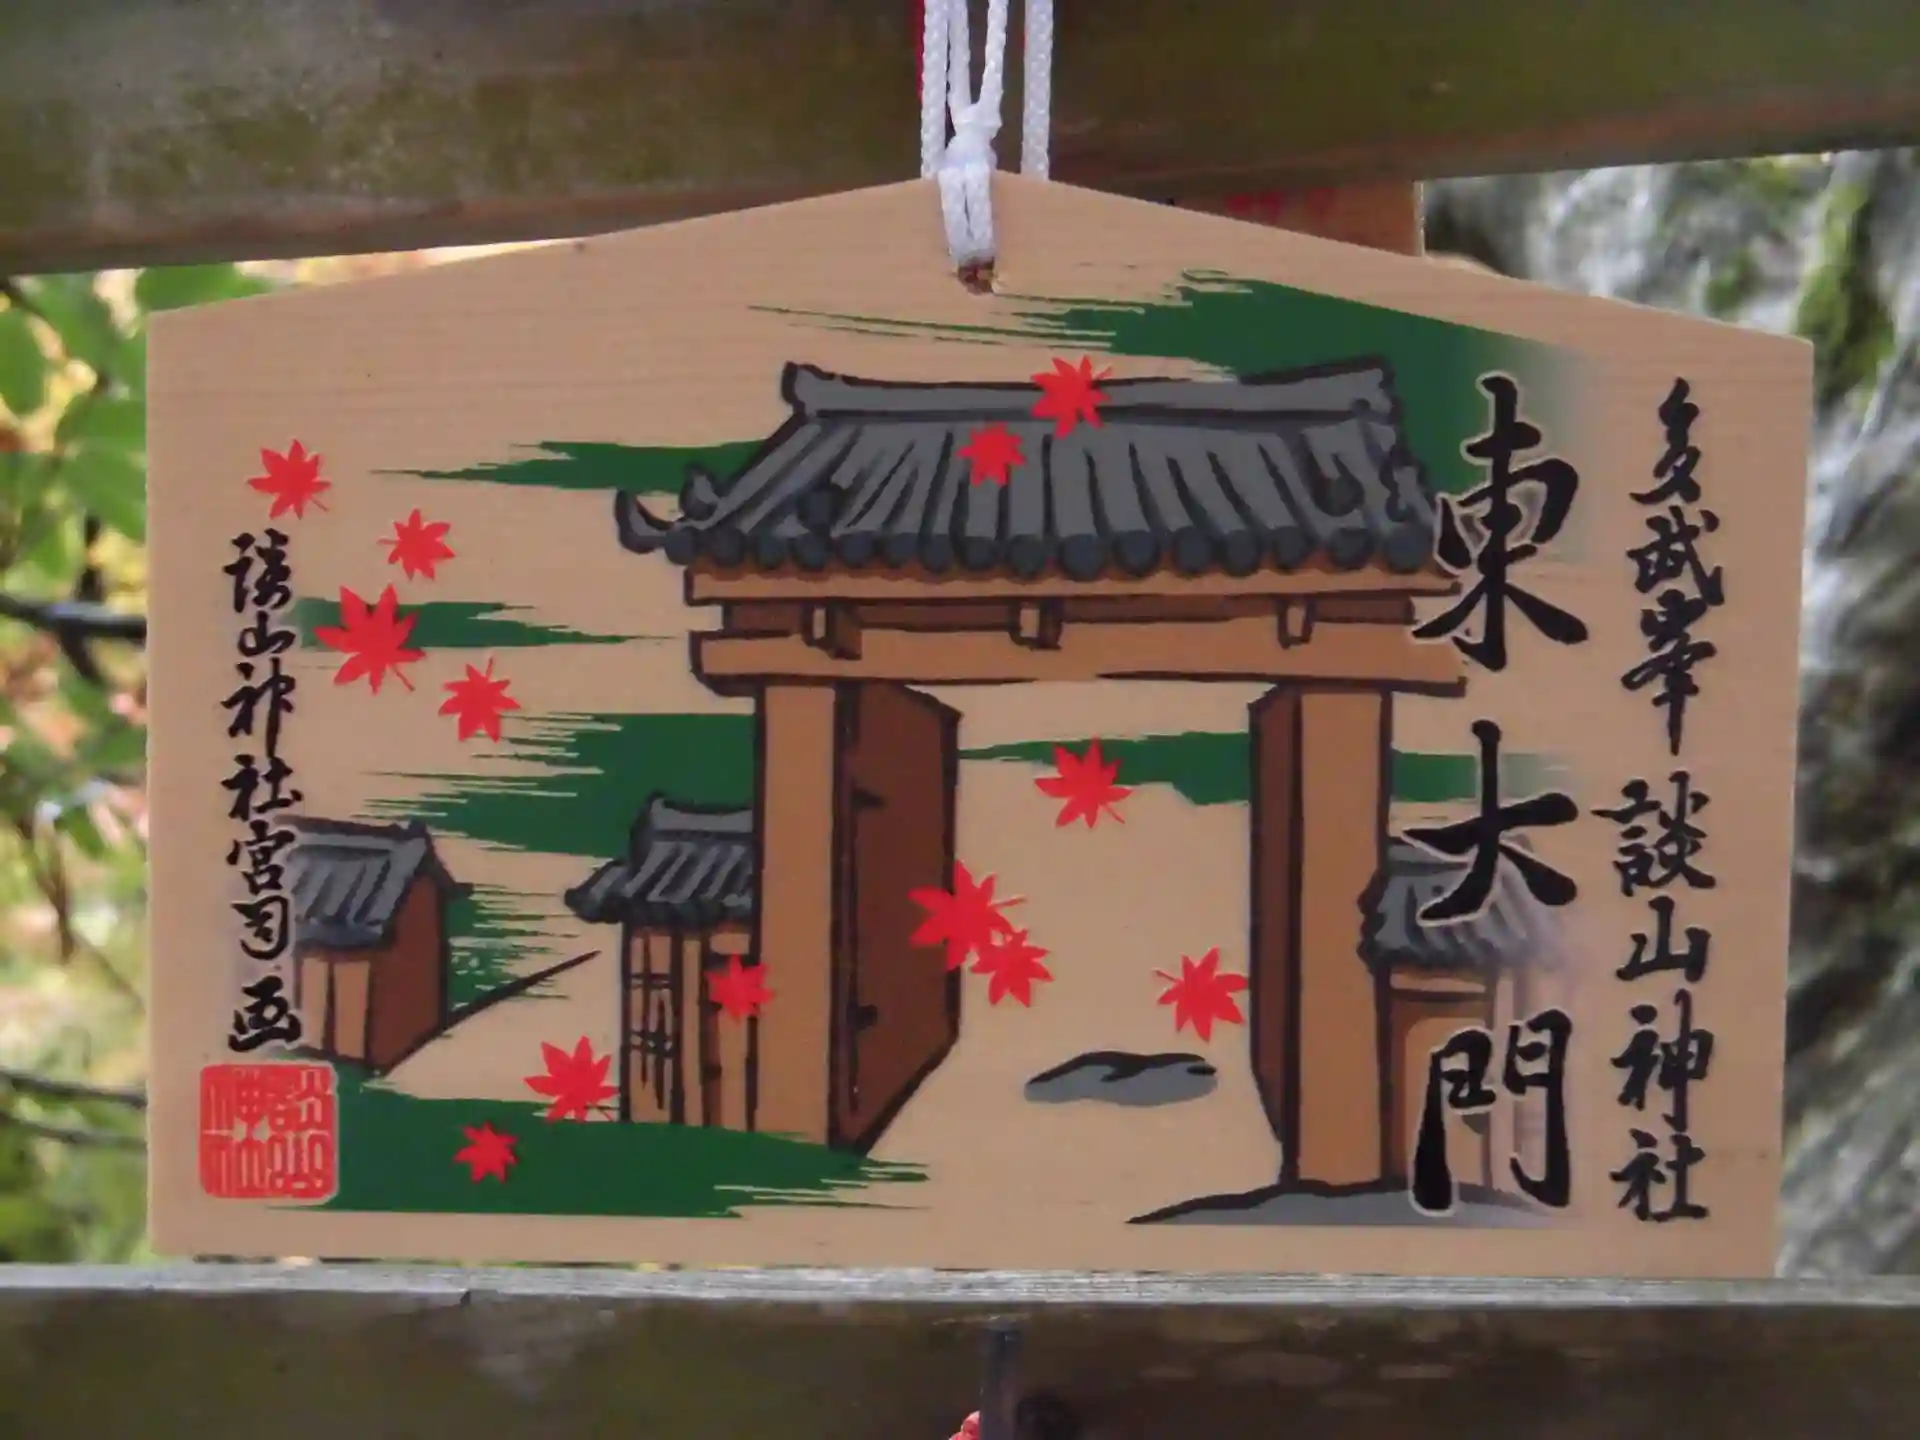 多武峯 談山神社
東大門
談山神社宮司画
談山神社